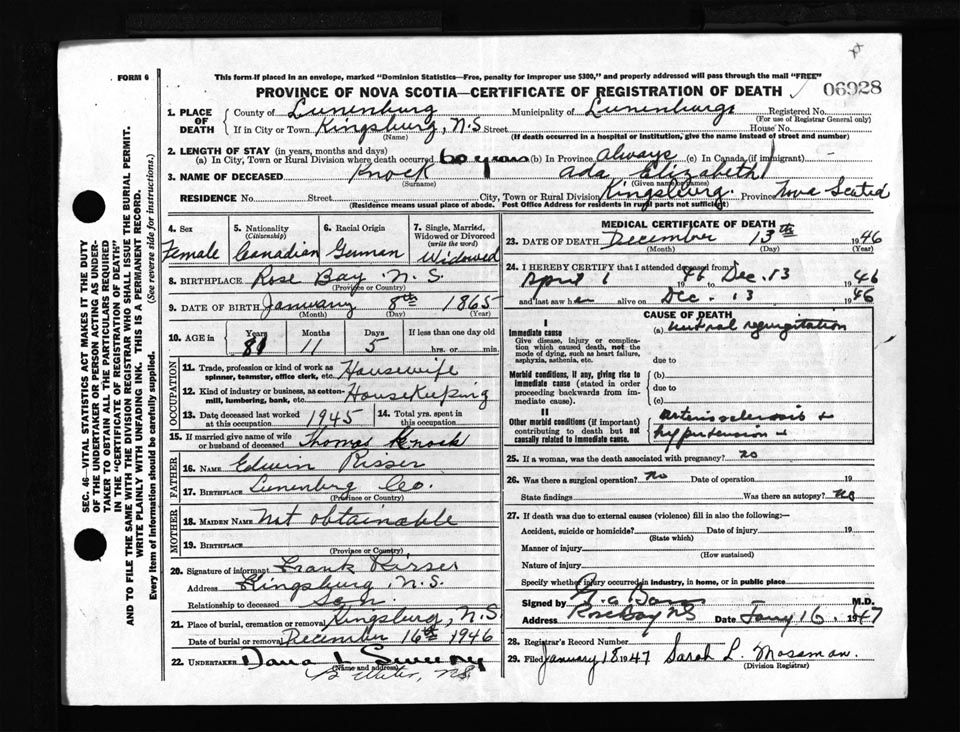 FORM 6
This form if placed in an envelope, marked "Dominion Statistics—Free, penalty for improper use $300," and properly addressed will pass through the mail "FREE"
PROVINCE OF NOVA SCOTIA—CERTIFICATE OF REGISTRATION OF DEATH
06928
SEC. 46—VITAL STATISTICS ACT MAKES IT THE DUTY
OF THE UNDERTAKER OR PERSON ACTING AS UNDERTAKER
TO OBTAIN ALL THE PARTICULARS REQUIRED
IN THE "CERTIFICATE OF REGISTRATION OF DEATH"
AND TO FILE THE SAME WITH THE DIVISION REGISTRAR WHO SHALL ISSUE THE BURIAL PERMIT.
WRITE PLAINLY WITH UNFADING INK. THIS IS A PERMANENT RECORD.
Every item of information should be carefully supplied. (See reverse side for instructions.)
1. PLACE OF DEATH County of Lunenburg Municipality of Lunenburg Registered No.
(For use of Registrar General only)
If in City or Town Kingsburg, N.S Street House No.
(Name) (If death occurred in a hospital or institution, give the name instead of street and number)
2. LENGTH OF STAY (in years, months and days)
(a) In City, Town or Rural Division where death occurred 60 years (b) In Province always (c) In Canada (if immigrant)
3. NAME OF DECEASED Knock Ada Elizabeth
(Surname) (Given name or names)
RESIDENCE No. Street City, Town or Rural Division Kingsburg. Province Nova Scotia
(Residence means usual place of abode. Post Office Address for residents in rural parts not sufficient)
4. Sex Female
5. Nationality (Citizenship) Canadian
6. Racial Origin German
7. Single, Married, Widowed or Divorced (write the word) Widowed
8. BIRTHPLACE Rose Bay N. S.
(Province or Country)
9. DATE OF BIRTH January 8th 1865
(Month) (Day) (Year)
10. AGE in Years Months Days If less than one day old
81 11 5 hrs. or min.
OCCUPATION
11. Trade, profession or kind of work as spinner, teamster, office clerk, etc. Housewife
12. Kind of industry or business, as cotton-mill, lumbering, bank, etc. Housekeeping
13. Date deceased last worked at this occupation 1945 14. Total yrs. spent in this occupation
15. If married give name of wife or husband of deceased Thomas Knock
FATHER
16. NAME Edwin Risser
17. BIRTHPLACE Lunenburg Co.
(Province or Country)
MOTHER
18. MAIDEN NAME Not obtainable
19. BIRTHPLACE
(Province or Country)
20. Signature of informant Frank Risser
Address Kingsburg, N.S.
Relationship to deceased Son
21. Place of burial, cremation or removal Kingsburg, N.S
Date of burial or removal December 16th 1946
22. UNDERTAKER Dana L Sweeny
(Name and address)
Bridgewater, NS.
MEDICAL CERTIFICATE OF DEATH
23. DATE OF DEATH December 13th 1946
(Month) (Day) (Year)
24. I HEREBY CERTIFY that I attended deceased from:
April 1 1946 Dec. 13 1946
and last saw her alive on Dec. 13 1946
CAUSE OF DEATH
I
Immediate cause
Give disease, injury or complication which caused death, not the mode of dying, such as heart failure, asphyxia, asthenia, etc.
(a) mitral regurgitation
due to
Morbid conditions, if any, giving rise to immediate cause (stated in order proceeding backwards from immediate cause).
(b)
due to
(c)
II
Other morbid conditions (if important) contributing to death but not causally related to immediate cause.
arteriosclerosis +
hypertension +
25. If a woman, was the death associated with pregnancy? no
26. Was there a surgical operation? no Date of operation 19
State findings Was there an autopsy? no
27. If death was due to external causes (violence) fill in also the following:—
Accident, suicide or homicide? Date of injury 19
(State which)
Manner of injury
(How sustained)
Nature of injury
Specify whether injury occurred in industry, in home, or in public place
Signed by M.D.
Address Rosebay NS Date Jany 16. 1947
28. Registrar's Record Number
29. Filed January 18 1947 Sarah L. Mossman.
(Division Registrar)